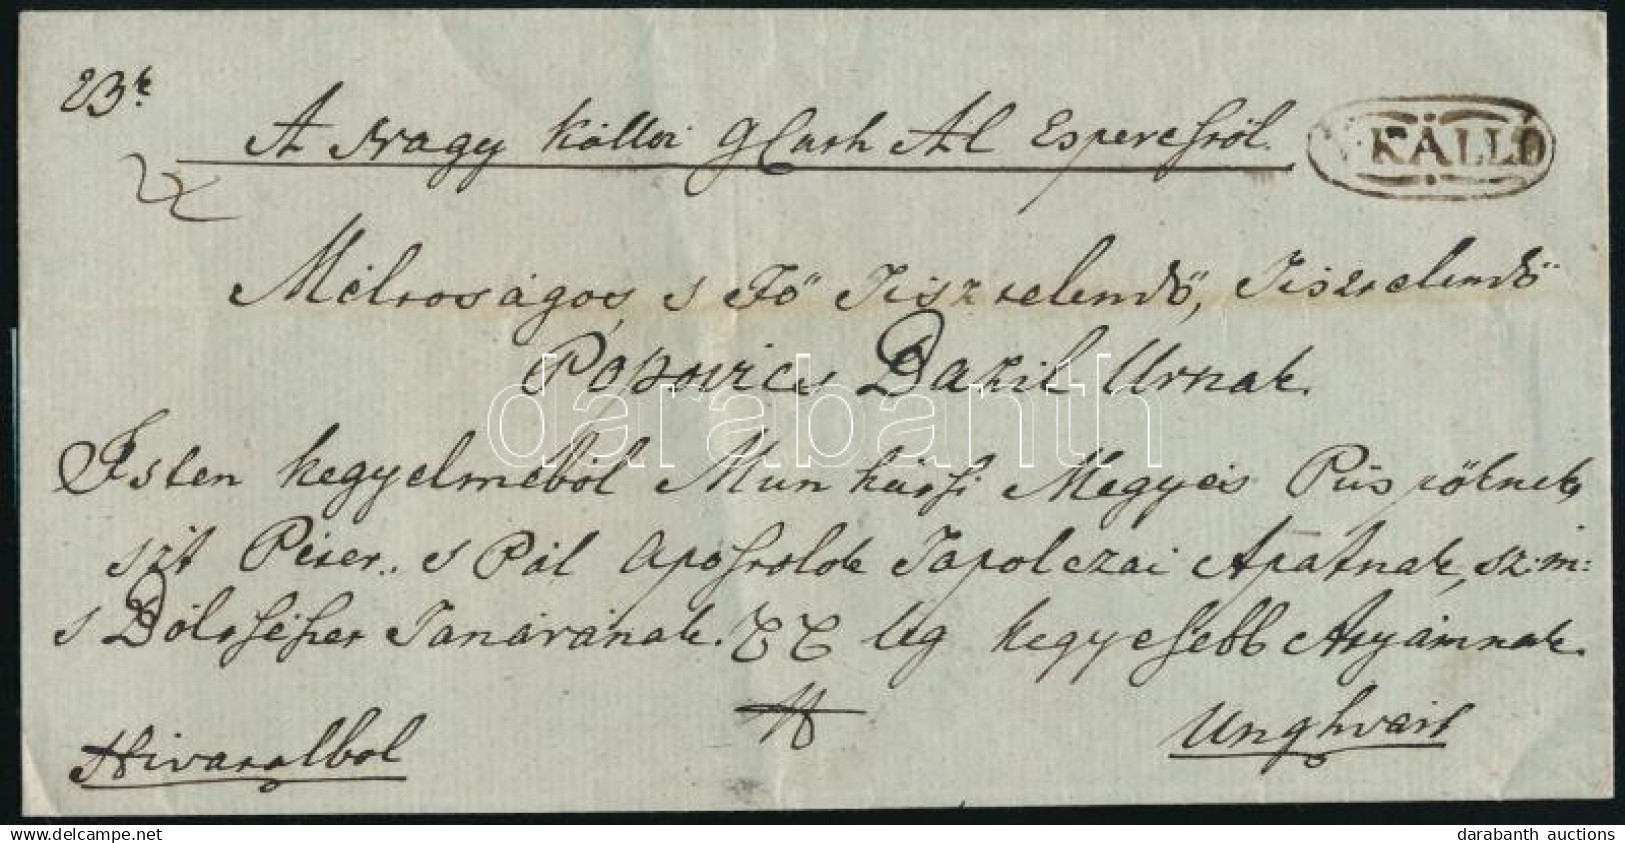 23k.
A Nagy Kállói GCath Al Esperestöl.
KÁLLÓ
Méltoságos, s Fő Tisztelendő, Tisztelendő
Popovics Bazil Urnak.
Isten kegyelméböl Munkátsi Megyés Püspöknek
szt Péter.. s Pál Apostolok Tapolczai Apátnak, sz: m:
s Bölts Tanárának. TT leg kegyesebb Atyámnak.
Hivatalbol
Unghvárt
darabanth
darabanth auctions